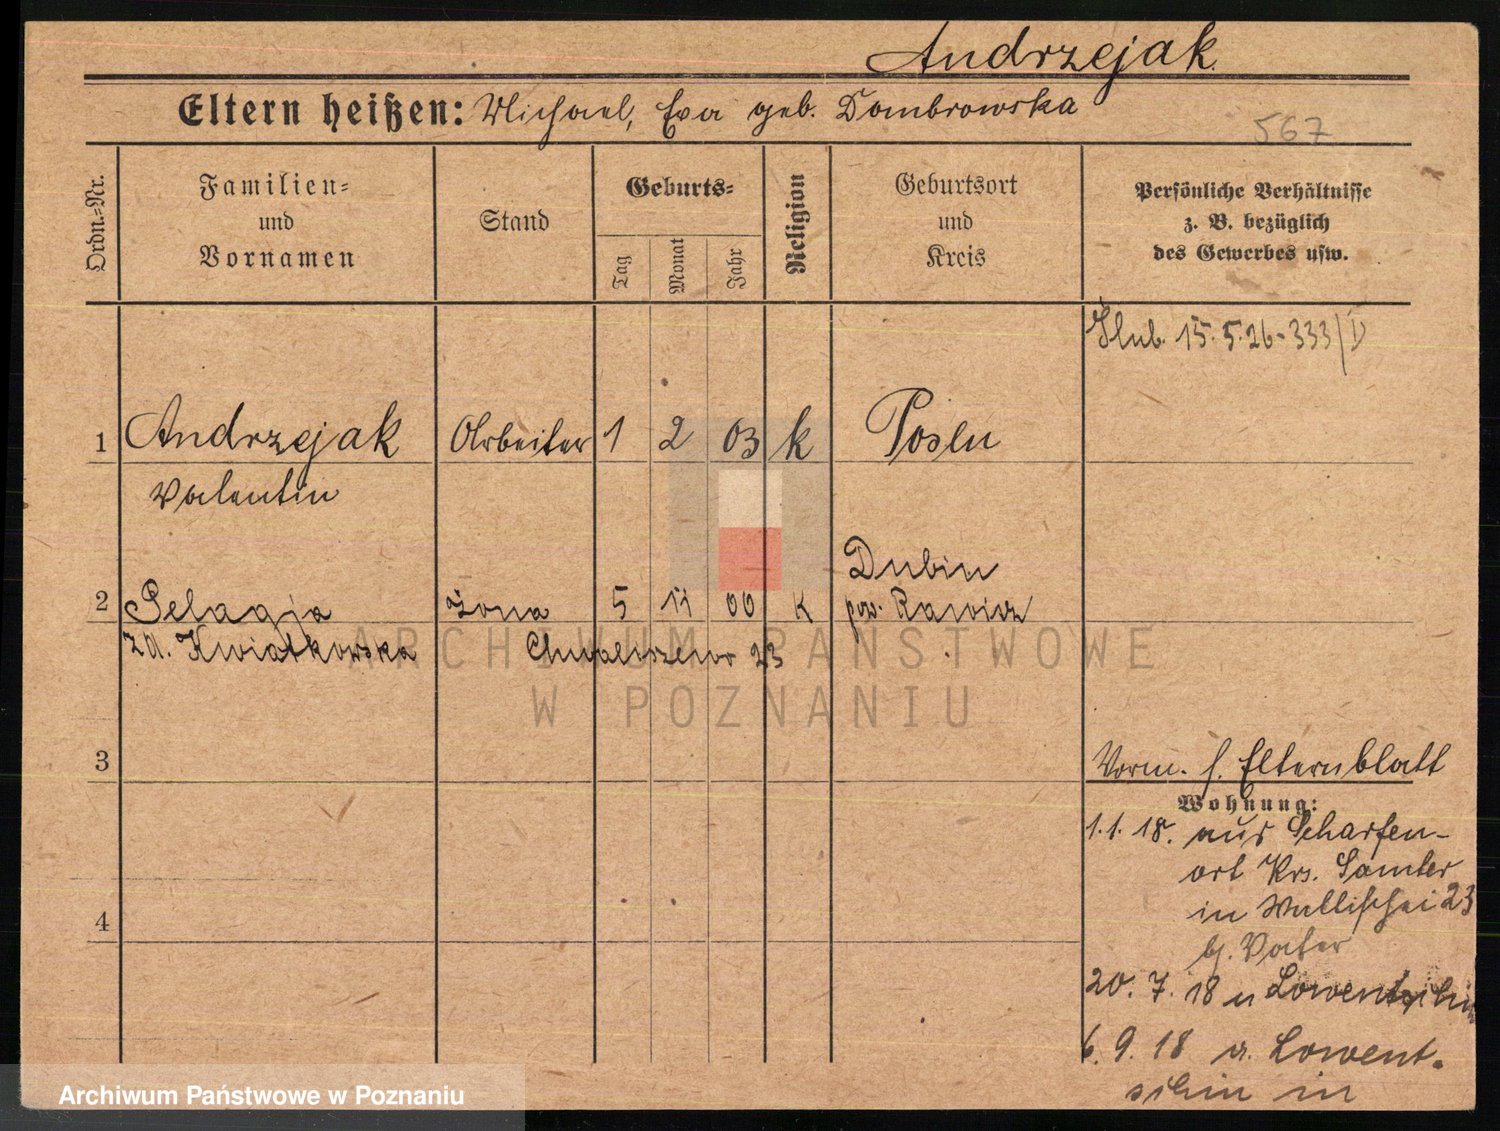 Andrzejak
Eltern heißen: Michael, Eva geb. Dombrowska
567
Ordn.-Nr.
Familien-
und
Vornamen
Stand
Geburts-
Tag
Monat
Jahr
Religion
Geburtsort
und
Kreis
Persönliche Verhältnisse
z. B. bezüglich
des Gewerbes usw.
Ślub. 15.5.26-333/V
1 Andrzejak Arbeiter 1 2 03 k Posen
Valentin
Dubin
2 Pelagja żona 5 11 00 k pow. Rawicz
zd. Kwiatkowska Chwaliszewo 23
ARCHIWUM PAŃSTWOWE
W POZNANIU
3
Vorm. s. Elternblatt
Wohnung:
1.1.18. aus Scharfen-
ort Krs. Samter
in Wallischei 23
b. Vater
4
20.7.18 n Lowentschin
6.9.18 v. Lowent-
schin in
Archiwum Państwowe w Poznaniu